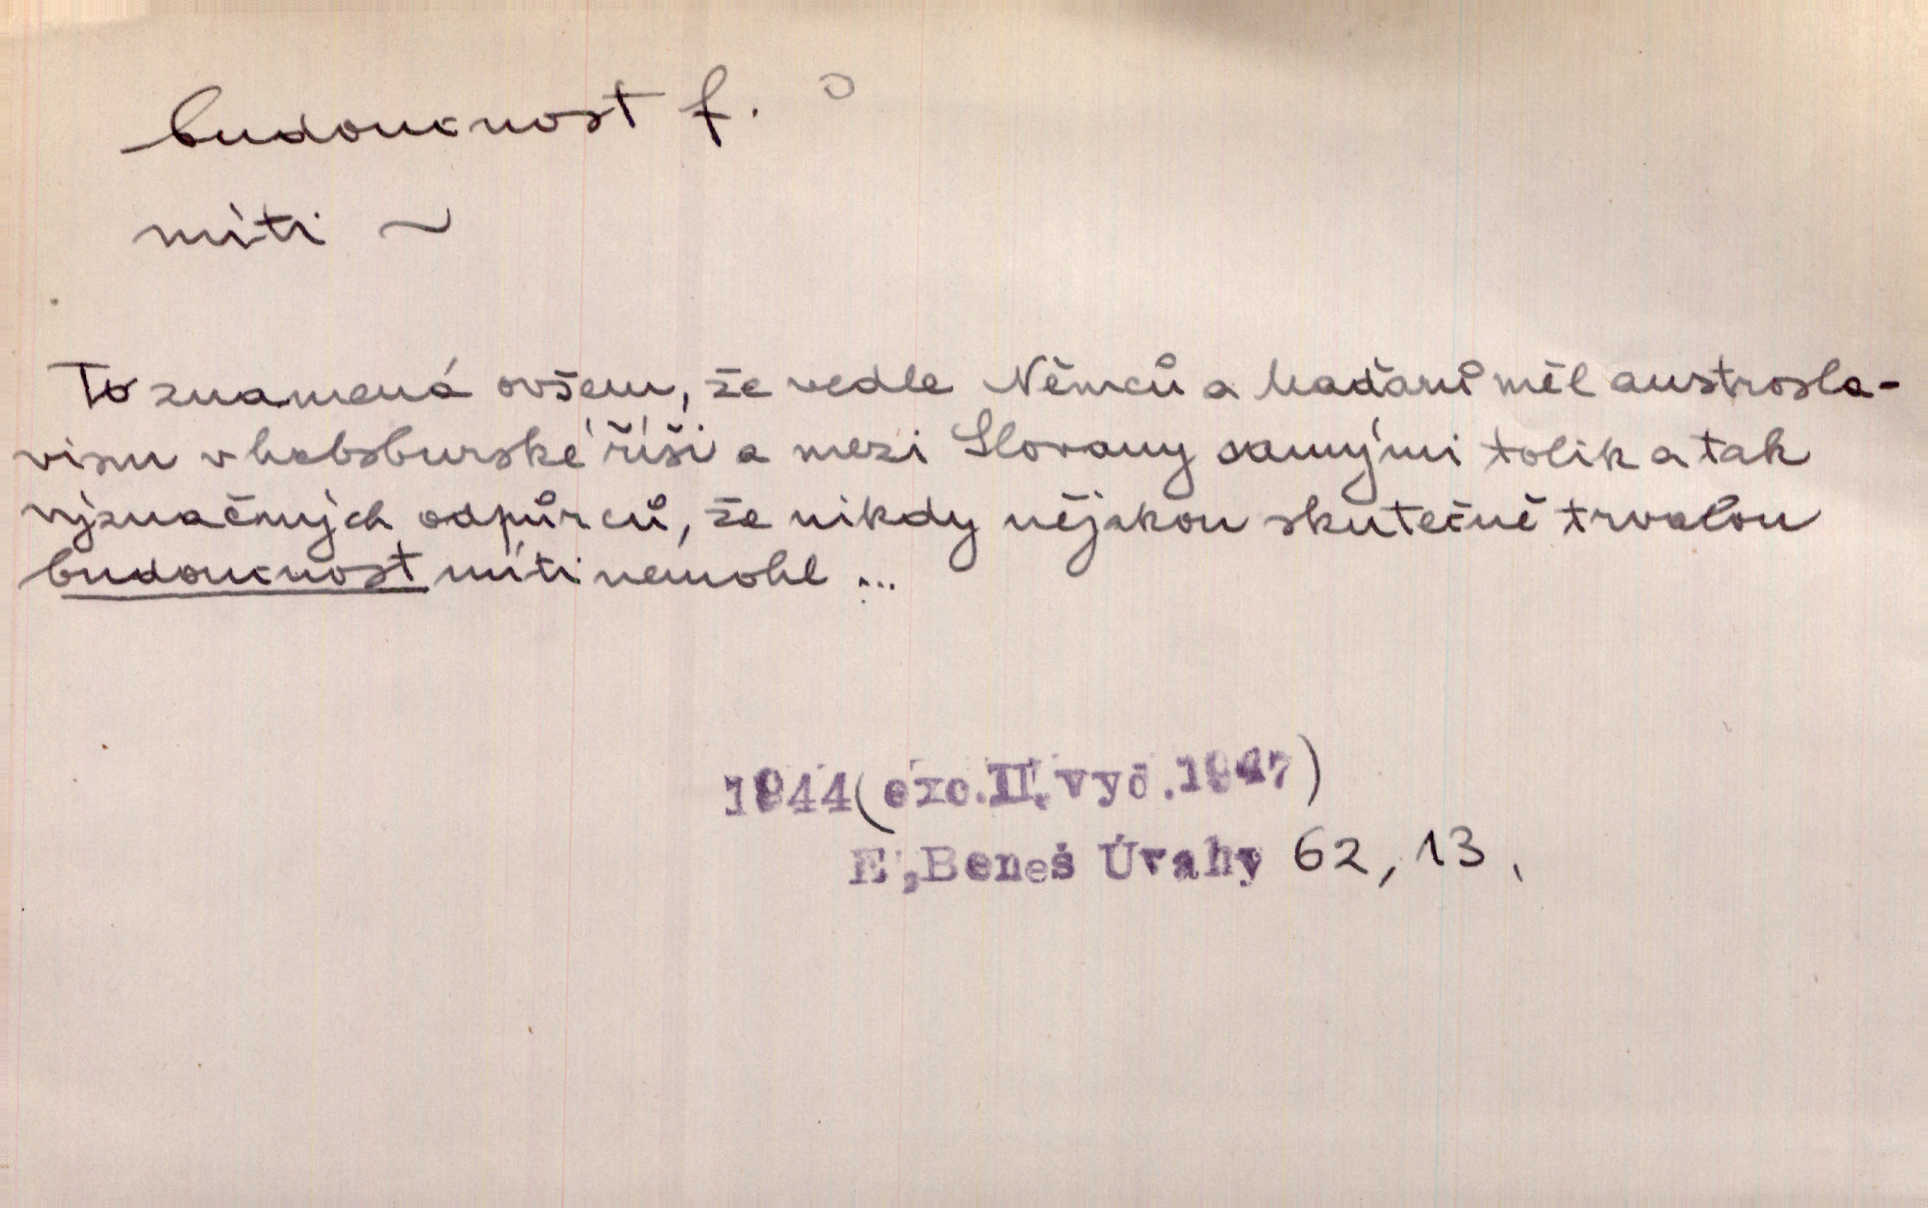 budoucnost f.
míti ~
To znamená ovšem, že vedle Němců a Maďarů měl austrosla-
vism v habsburské říši a mezi Slovany samými tolik a tak
význačných odpůrců, že nikdy nějakou skutečně trvalou
budoucnost míti nemohl ...
1944 (exc. II. vyd. 1947)
E. Beneš Úvahy 62, 13.